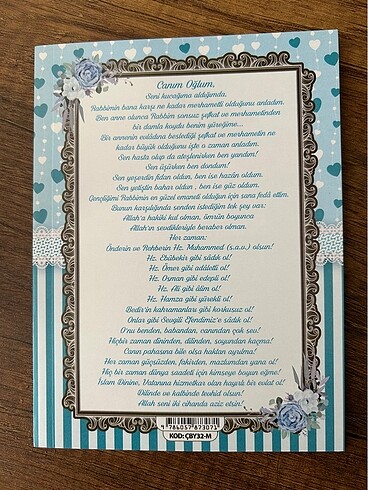 Canım Oğlum,
Seni kucağıma aldığımda,
Rabbimin bana karşı ne kadar merhametli olduğunu anladım.
Ben anne olunca Rabbim sonsuz şefkat ve merhametinden
bir damla koydu benim yüreğime...
Bir annenin evladına beslediği şefkat ve merhametin ne
kadar büyük olduğunu işte o zaman anladım.
Sen hasta olup da ateşlenirken ben yandım!
Sen üşürken ben dondum!
Sen yeşerdin fidan oldun, ben ise hazân oldum.
Sen yetiştin bahar oldun, ben ise güz oldum.
Gençliğimi Rabbimin en güzel emaneti olduğun için sana fedâ ettim.
Bunun karşılığında senden istediğim tek şey var:
Allah'a hakiki kul olman, ömrün boyunca
Allah'ın sevdikleriyle beraber olman.
Her zaman:
Önderin ve Rehberin Hz. Muhammed (s.a.v.) olsun!
Hz. Ebûbekir gibi sâdık ol!
Hz. Ömer gibi adâletli ol!
Hz. Osman gibi edepli ol!
Hz. Ali gibi âlim ol!
Hz. Hamza gibi yürekli ol!
Bedir'in kahramanları gibi korkusuz ol!
Onlar gibi Sevgili Efendimiz'e sâdık ol!
O'nu benden, babandan, canından çok sev!
Hiçbir zaman dininden, dilinden, soyundan kaçma!
Canın pahasına bile olsa haktan ayrılma!
Her zaman güçsüzden, fakirden, mazlumdan yana ol!
Hiç bir zaman dünya saadeti için kimseye boyun eğme!
İslam Dinine, Vatanına hizmetkar olan hayırlı bir evlat ol!
Dilinde ve kalbinde tevhid olsun!
Allah seni iki cihanda aziz etsin!
9 786057 873071
KOD: ÇBY32-M